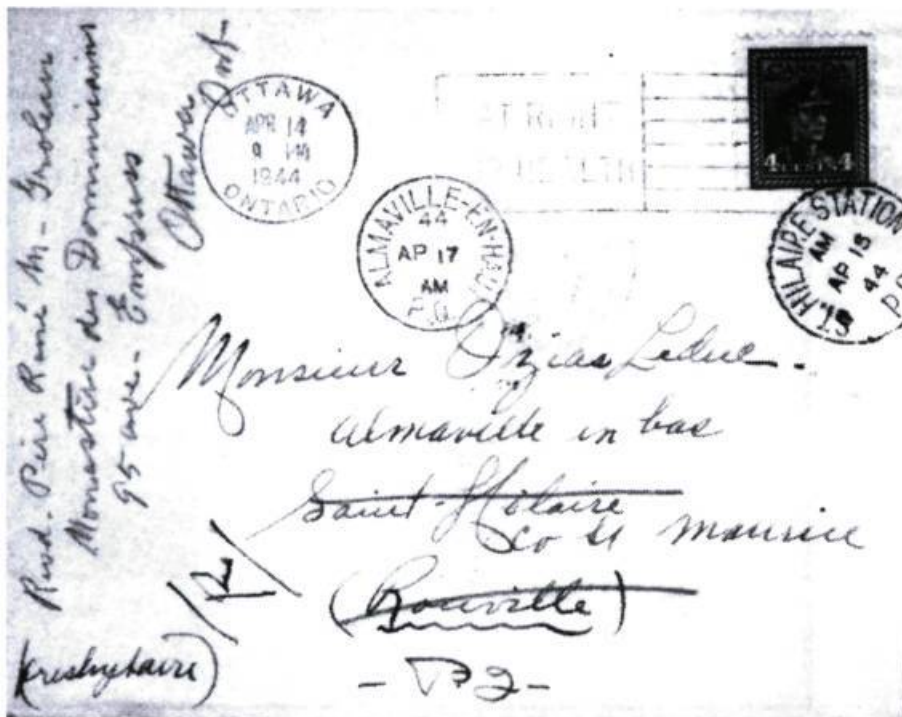 Rvd. Père René M. Groleau
Monastère des Dominicains
95 ave. Empress
Ottawa Ont-
OTTAWA
APR 14
9 PM
1944
ONTARIO
ALMAVILLE-EN-HAUT
44
AP 17
AM
P.Q.
AT
4 4
ST. HILAIRE STATION
AM
AP 15
44
P.Q.
Monsieur Ozias Leduc.
Almaville en bas
Saint-Hilaire
Co St Maurice
(Rouville)
- P2 -
(Presbytaire)